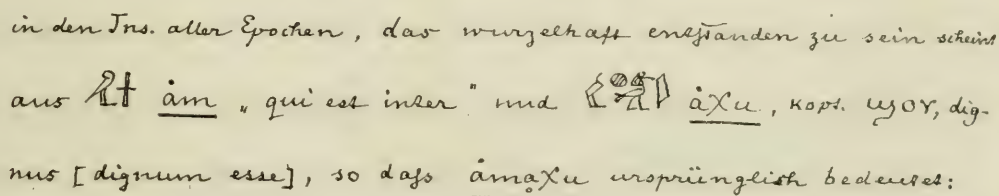 in den Ins. aller Epochen, das wurzelhaft entstanden zu sein scheint
aus ȧm „qui est inter" und ȧχu, kopt. ϣⲟⲩ, dig-
nus [dignum esse], so daſs ȧmaχu ursprünglich bedeutet: